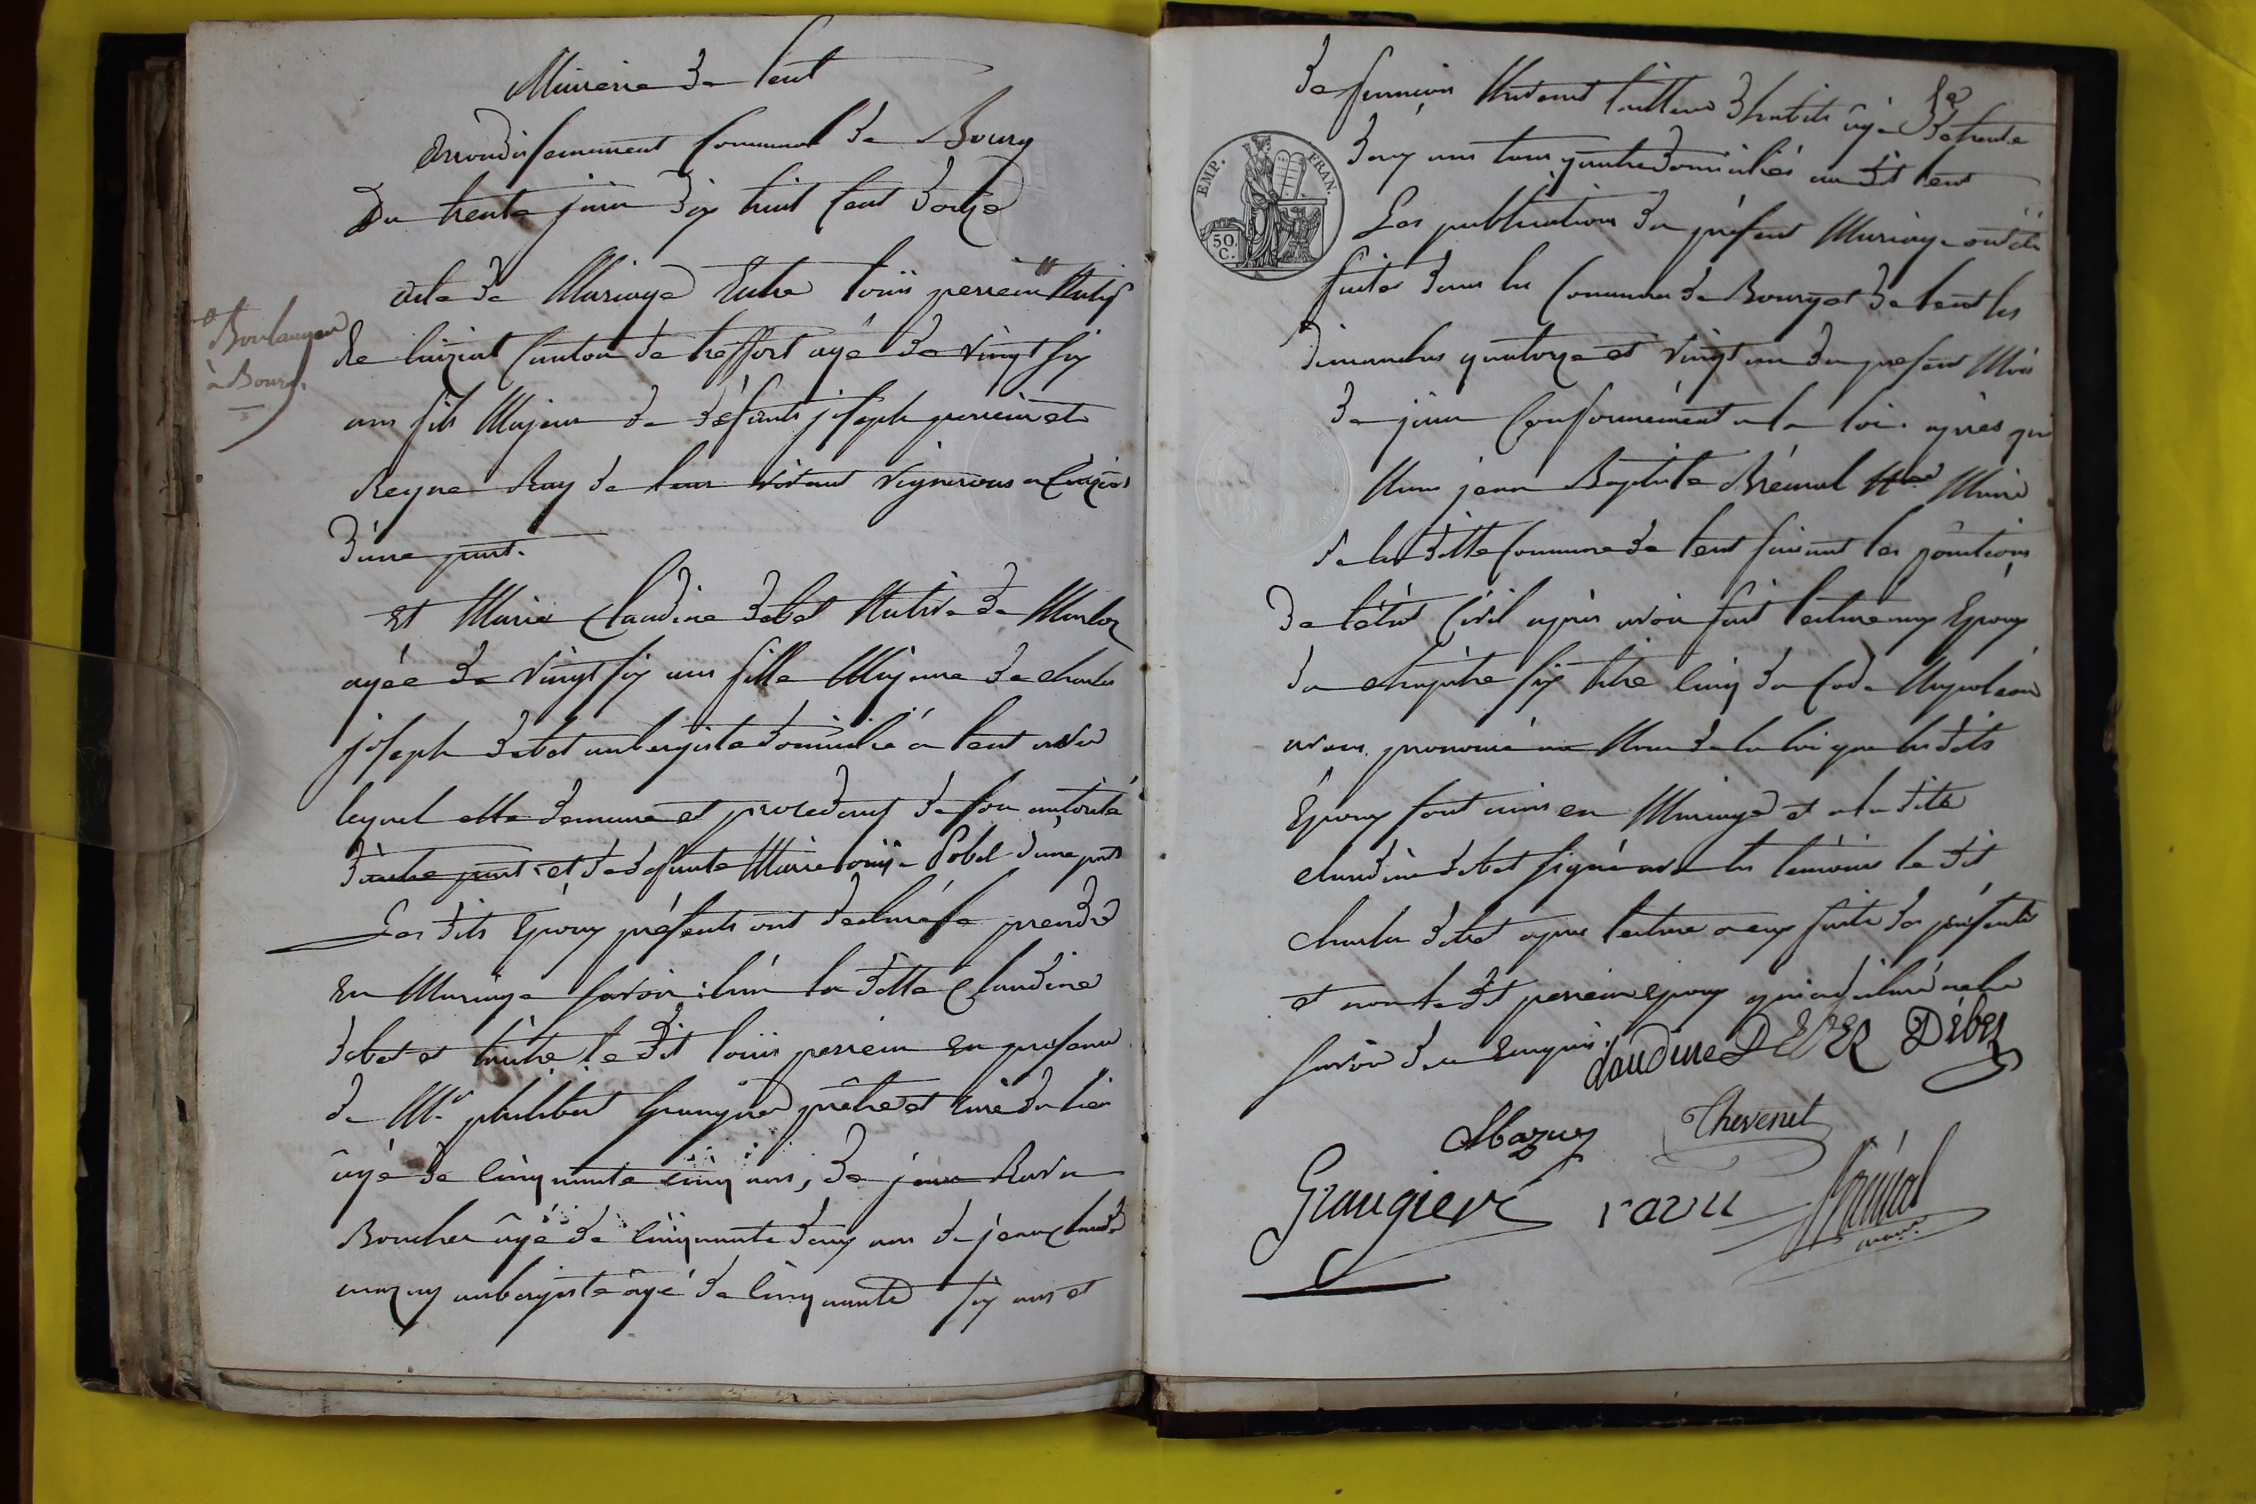 Mairerie de tent
arrondissement Communal de Bourg
Du trente juin dix huit Cent douze
acte de Mariage Entre louis perrein Natif
Boulanger
à Bourg.
de Cuiziat Canton de treffort agé de vingt six
ans fils Majeur de défunts joseph perrein et
Reyne Ray de leur vivant vignerons a Cuiziat
d'une part.
Et Marie Claudine debet Native de Marboz
agée de vingt six ans fille Majeure de charles
joseph debet aubergiste domicilié á tent avec
lequel elle demeure et procedant de son autorité
d'autre part. et de defunte Marie Pobel d'une part
Les dits Epoux présents ont declaré se prendre
En Mariage savoir: l'un la ditte Claudine
debet et l'autre le dit louis perrein en presence
de Mr. philibert Grangier prêtre et curé du lieu
âgé de cinquante cinq ans, de jean Ravu
Boucher âgé de cinquante deux ans de jean claude
mazuy aubergiste âgé de cinquante six ans et
de tailleur d'habits âgé de trente
EMP. FRAN.
50. C.
deux ans tous quatre domiciliés au dit tent
Les publications du présent Mariage ont été
faites dans les Communes de Bourg et de tent les
dimanches quatorze et vingt un du present Mois
de juin Conformément a la loi. après quoi
Nous jean Baptiste Brémal Maire
de la ditte Commune de tent faisant les fonctions
de l'état Civil après avoir fait lecture aux Epoux
du chapitre six titre cinq du Code Napoleon
avons prononcé au Nom de la loi que les dits
Epoux sont unis en Mariage et a la dite
claudine debet signé avec les témoins le dit
charles debet apres lecture a eux faite des présentes
et non le dit perrein epoux qui a déclaré ne le
savoir de ce enquis.
claudine DEBER Débet
Mazuy Thevenet
Grangier ravu Brémal
maire.